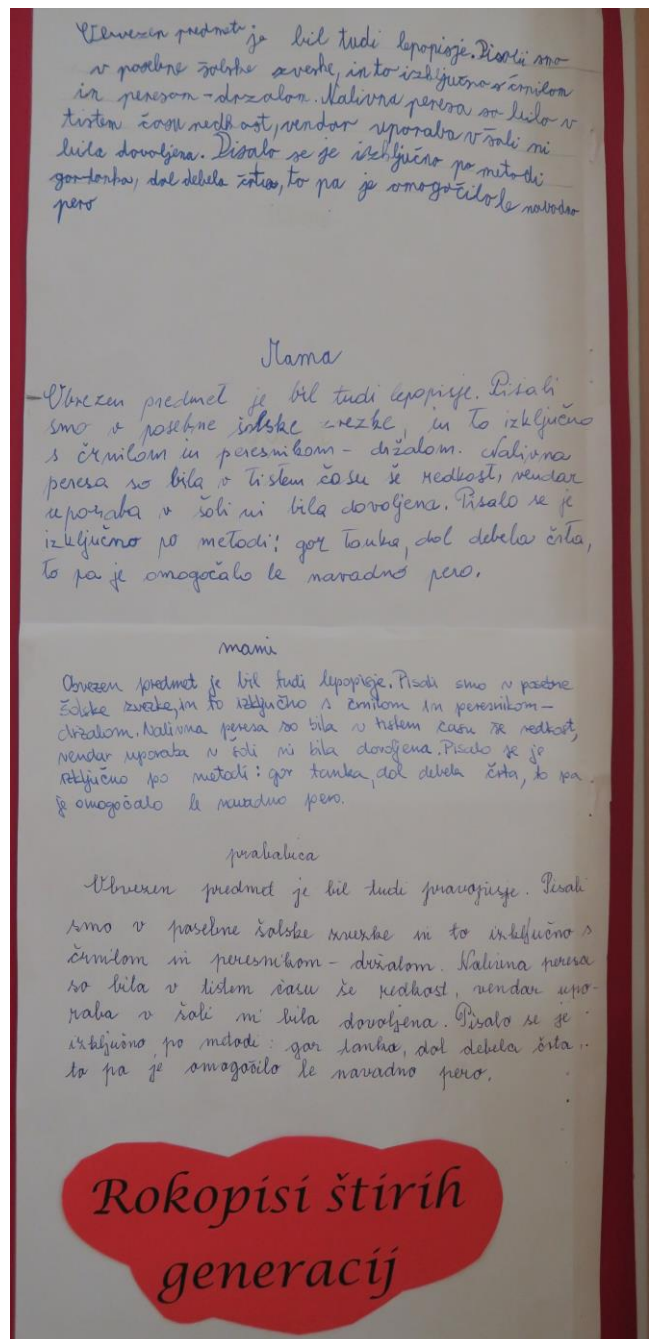 Obvezen predmet je bil tudi lepopisje. Pisali smo
v posebne šolske zveske, in to izključno s črnilom
in peresom - držalom. Nalivna peresa so bilo v
tistem času redkost, vendar uporaba v šoli ni
bila dovoljena. Pisalo se je izključno po metodi
gor tanka, dol debela črta, to pa je omogočilo le navadno
pero
Mama
Obvezen predmet je bil tudi lepopisje. Pisali
smo v posebne šolske zvezke, in to izključno
s črnilom in peresnikom - držalom. Nalivna
peresa so bila v tistem času še redkost, vendar
uporaba v šoli ni bila dovoljena. Pisalo se je
izključno po metodi: gor tanka, dol debela črta,
to pa je omogočalo le navadno pero.
mami
Obvezen predmet je bil tudi lepopisje. Pisali smo v posebne
šolske zvezke, in to izključno s črnilom in peresnikom -
držalom. Nalivna peresa so bila v tistem času še redkost,
vendar uporaba v šoli ni bila dovoljena. Pisalo se je
izključno po metodi: gor tanka, dol debela črta, to pa
je omogočalo le navadno pero.
prababica
Obvezen predmet je bil tudi pravopisje. Pisali
smo v posebne šolske zvezke in to izključno s
črnilom in peresnikom - držalom. Nalivna peresa
so bila v tistem času še redkost, vendar upo-
raba v šoli ni bila dovoljena. Pisalo se je
izključno po metodi: gor tanka, dol debela črta
to pa je omogočilo le navadno pero.
Rokopisi štirih
generacij